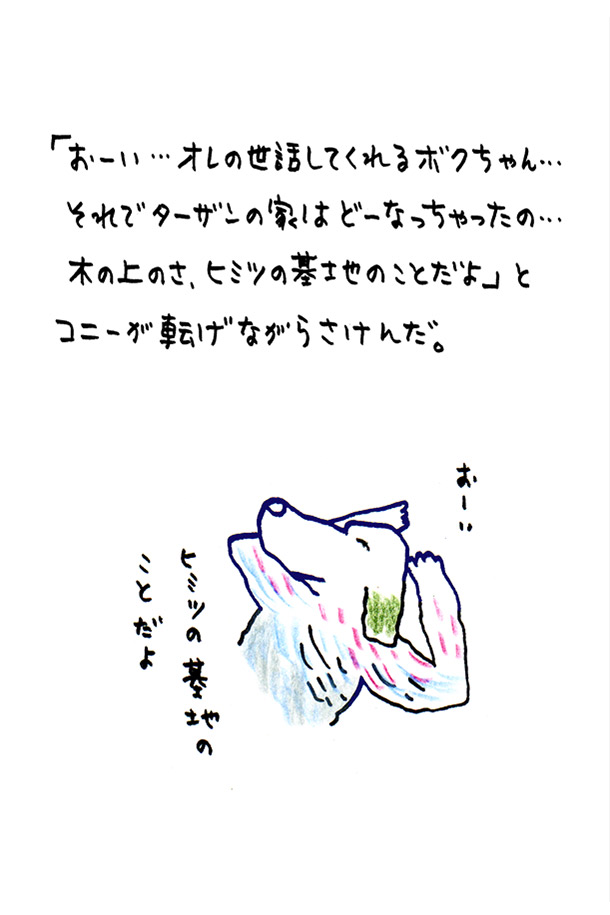 「おーい…オレの世話してくれるボクちゃん…
それでターザンの家はどーなっちゃったの…
木の上のさ、ヒミツの基地のことだよ」と
コニーが転げながらさけんだ。
おーい
ヒミツの基地の
ことだよ